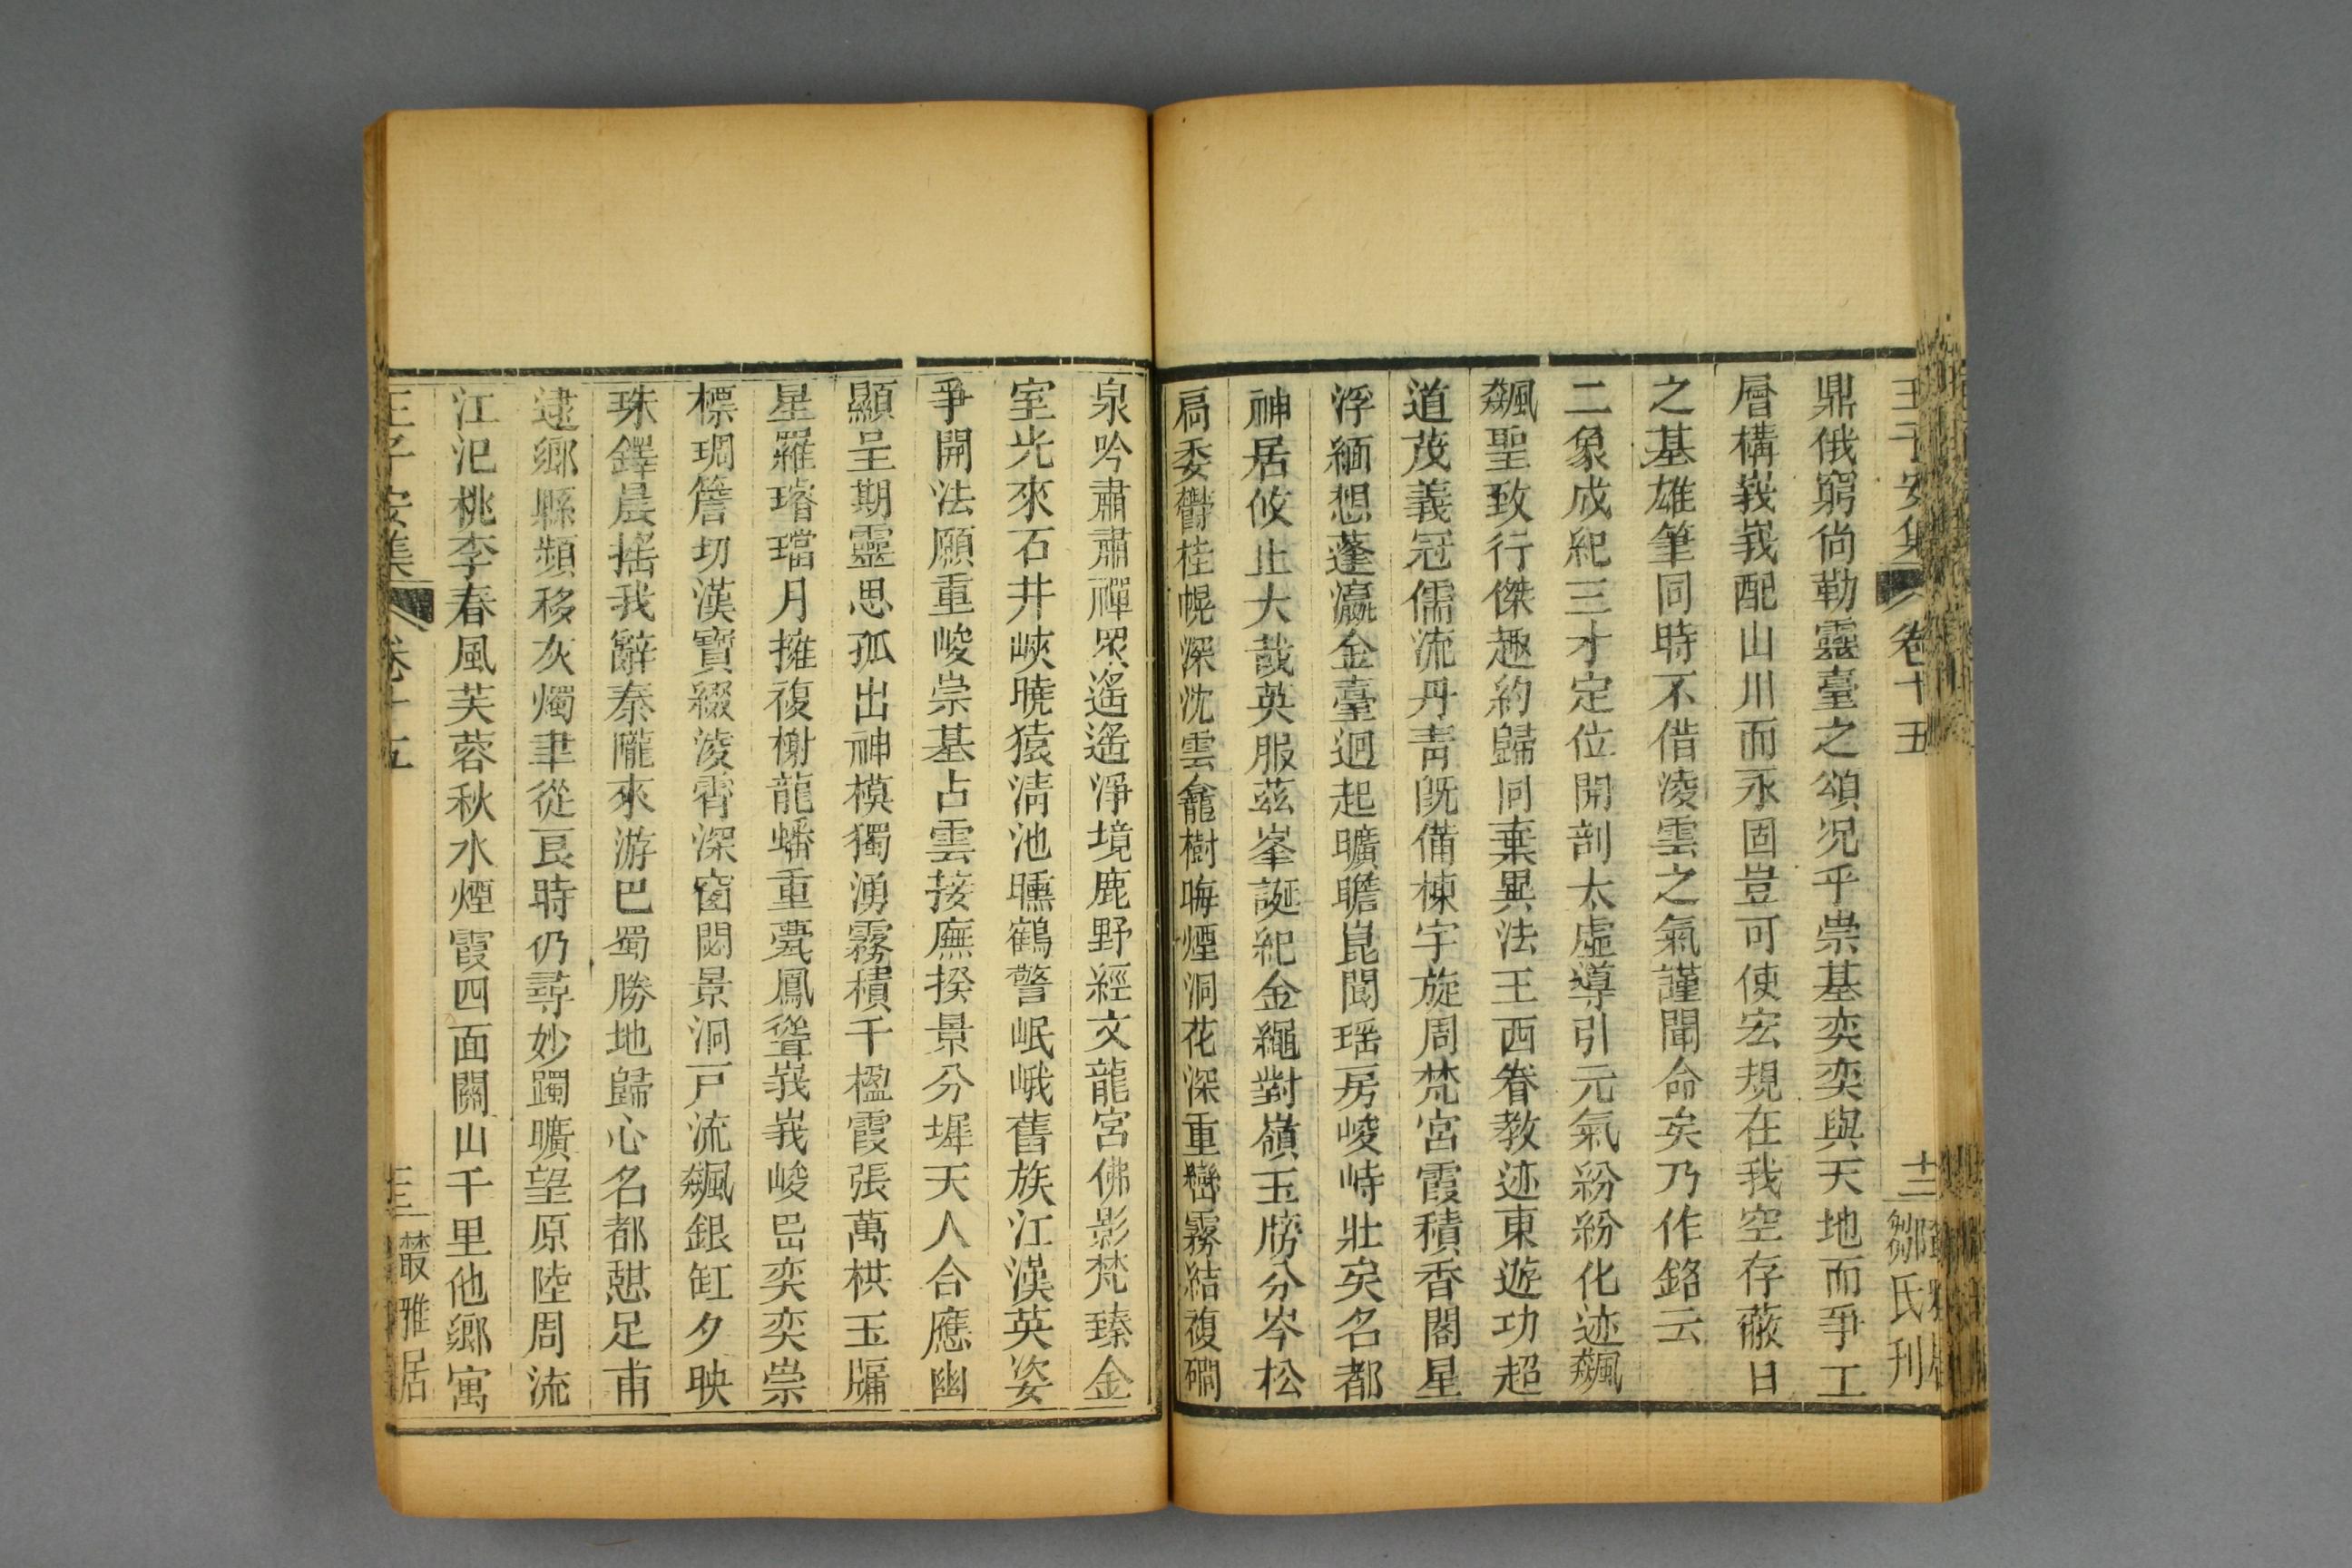 王子安集 卷十五 十二 鄒氏刊
鼎俄窮尙勒靈臺之頌况乎崇基奕奕與天地而爭工
層構峩峩配山川而永固豈可使宏規在我空存蔽日
之基雄筆同時不借淩雲之氣謹聞命矣乃作銘云
二象成紀三才定位開剖太虛導引元氣紛紛化迹飆
飆聖致行傑趣約歸同棄異法王西眷教迹東遊功超
道茂義冠儒流丹靑旣備棟宇旋周梵宮霞積香閣星
浮緬想蓬瀛金臺迥起曠瞻崑閬瑶房峻峙壯矣名都
神居攸止大哉英服茲峯誕紀金繩對嶺玉牓分岑松
扃委鬱桂幌深沈雲龕樹晦煙洞花深重巒霧結複磵
泉吟肅肅禪衆遙遙淨境鹿野經文龍宮佛影梵臻金
室光來石井峽曉猿淸池曛鶴警岷峨舊族江漢英姿
爭開法願重峻崇基占雲接廡揆景分墀天人合應幽
顯呈期靈思孤出神模獨湧霧積千楹霞張萬栱玉牖
星羅璿璫月擁複榭龍蟠重甍鳳聳峩峩峻岊奕奕崇
標琱簷切漢寶綴淩霄深窗閟景洞戸流飆銀缸夕映
珠鐸晨搖我辭秦隴來游巴蜀勝地歸心名都憇足甫
逮鄉縣頻移灰燭聿從良時仍尋妙躅曠望原陸周流
江汜桃李春風芙蓉秋水煙霞四面關山千里他鄉寓
王子安集 卷十五 叢雅居